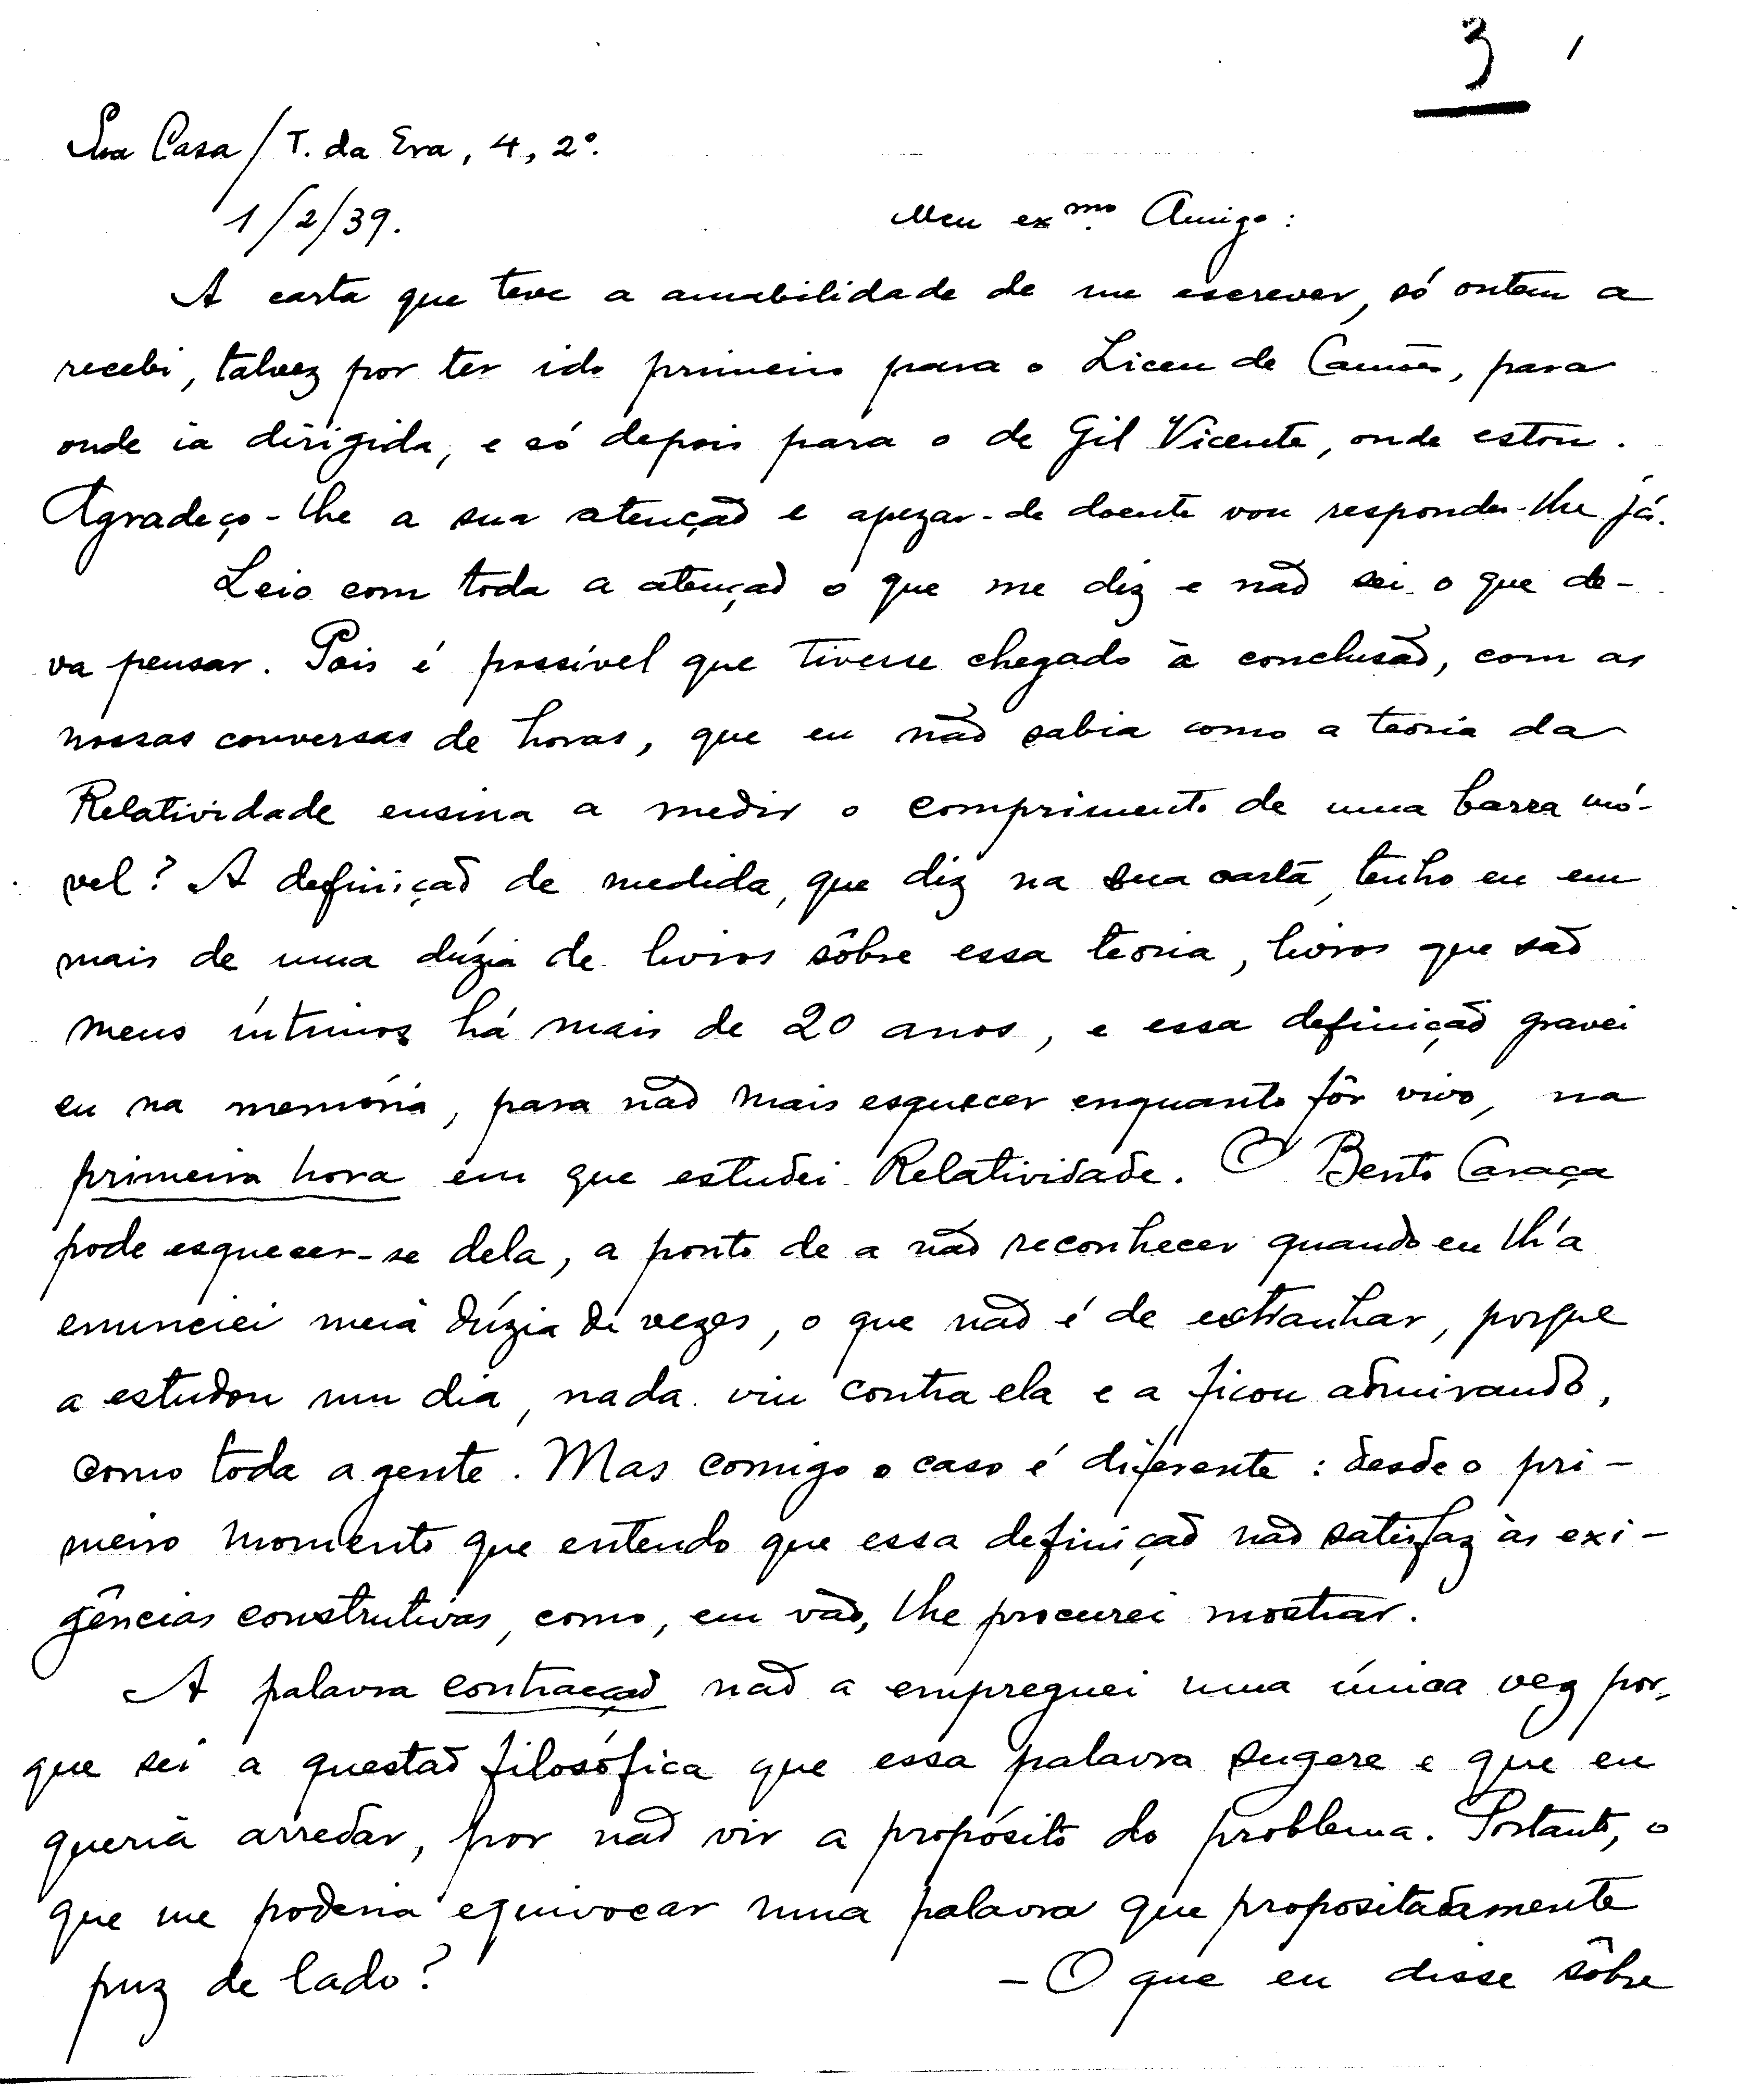 3
Sua Casa / T. da Era, 4, 2º.
1/2/39.
Meu exmo. Amigo:
A carta que teve a amabilidade de me escrever, só ontem a
recebi, talvez por ter ido primeiro para o Liceu de Camões, para
onde ia dirigida, e só depois para o de Gil Vicente, onde estou.
Agradeço-lhe a sua atenção e apezar-de doente vou responder-lhe já.
Leio com toda a atenção o que me diz e não sei o que de-
va pensar. Pois é possível que tivesse chegado à conclusão, com as
nossas conversas de horas, que eu não sabia como a teoria da
Relatividade ensina a medir o comprimento de uma barra mó-
vel? A definição de medida, que diz na sua carta, tenho eu em
mais de uma dúzia de livros sôbre essa teoria, livros que são
meus íntimos há mais de 20 anos, e essa definição gravei
eu na memória, para não mais esquecer enquanto fôr vivo, na
primeira hora em que estudei Relatividade. O Bento Caraça
pode esquecer-se dela, a ponto de a não reconhecer quando eu lh'a
enunciei meia dúzia de vezes, o que não é de extranhar, porque
a estudou um dia, nada viu contra ela e a ficou admirando,
como toda a gente. Mas comigo o caso é diferente: desde o pri-
meiro momento que entendo que essa definição não satisfaz às exi-
gências construtivas, como, em vão, lhe procurei mostrar.
A palavra contracção não a empreguei uma única vez por-
que sei a questão filosófica que essa palavra sugere e que eu
queria arredar, por não vir a propósito do problema. Portanto, o
que me poderia equivocar numa palavra que propositadamente
puz de lado?
- O que eu disse sôbre